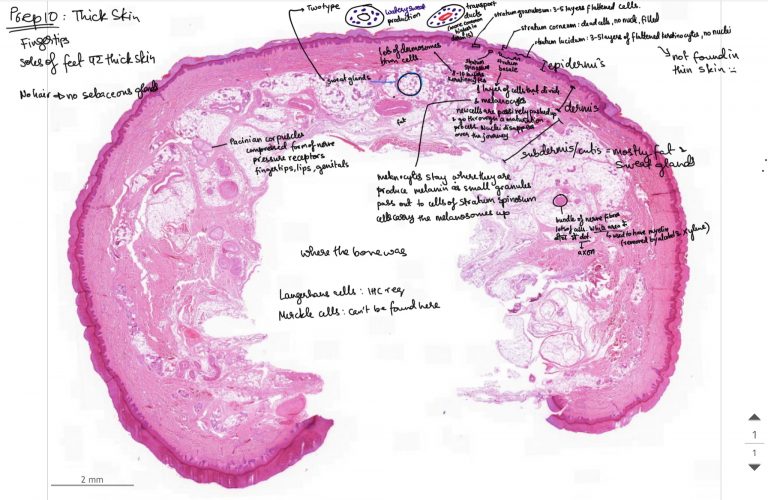 Prep 10: Thick Skin
Fingertips
soles of feet का thick skin
No hair → no sebaceous glands
Two type
watery sweat
production
transport
ducts
(more common
stratum granulosum: 3-5 layers flattened cells.
stratum corneum: dead cells, no nuclei, filled
stratum lucidum: 3-5 layers of flattened keratinocytes, no nuclei
not found in
thin skin
epidermis
lots of desmosomes
btwn cells
stratum
spinosum
8-10 layers
keratinocytes
stratum
basale
1 layer of cells that divide
& melanocytes
new cells are passively pushed up
& go through a maturation
process. Nuclei disappear
over the journey
dermis
sweat glands
fat
subdermis/cutis = mostly fat &
sweat glands
Pacinian corpuscles
compressed form of nerve
pressure receptors
fingertips, lips, genitals
melanocytes stay where they are
produce melanin as small granules
pass out to cells of stratum spinosum
cells carry the melanosomes up
bundle of nerve fibres
lots of
used to have myelin
(removed by alcohol & xylene)
axon
where the bone was
Langerhans cells: IHC req
Merckle cells: can't be found here
2 mm
1
1